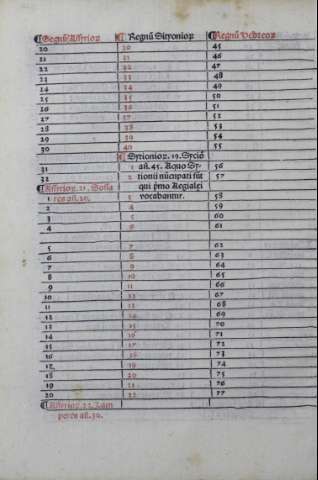 ¶Regnũ Assirioꝝ ¶ Regnũ Sicyonioꝝ ¶Regnũ Hebreoꝝ
20 30 45
21 31 46
22 32 47
23 33 48
24 34 49
25 35 50
26 36 51
27 37 52
28 38 53
29 39 54
30 40 55
Sycionioꝝ. 19. Syciõ
31 1 añ. 45. A quo Sy- 56
32 2 tionii nũcupati sũt 57
¶Assirioꝝ. 21. Sosa qui p̃mo Aegialei
1 res añ. 20. 3 vocabantur. 58
2 4 59
3 5 60
4 6 61
5 7 62
6 8 63
7 9 64
8 10 65
9 11 66
10 12 67
11 13 68
12 14 69
13 15 70
14 16 71
15 17 72
16 18 73
17 19 74
18 20 75
19 21 76
20 22 77
¶Assirioꝝ. 22. Lam
pares añ. 30.